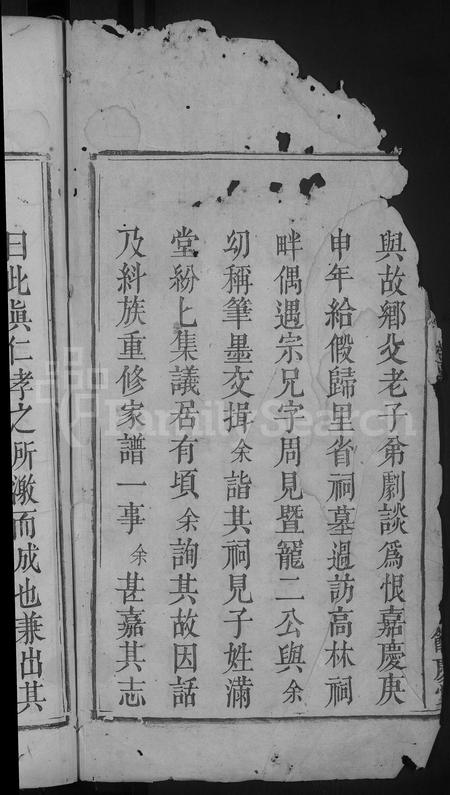 與故鄉父老子弟劇談爲恨嘉慶庚
申年給假歸里省祠墓過訪高林祠
畔偶遇宗兄字周見暨寵二公與余
㓜稱筆墨交揖余詣其祠見子姓滿
堂紛上集議居有頃余詢其故因話
及糾族重修家譜一事余甚嘉其志
曰此眞仁孝之所激而成也兼出其
FamilySearch